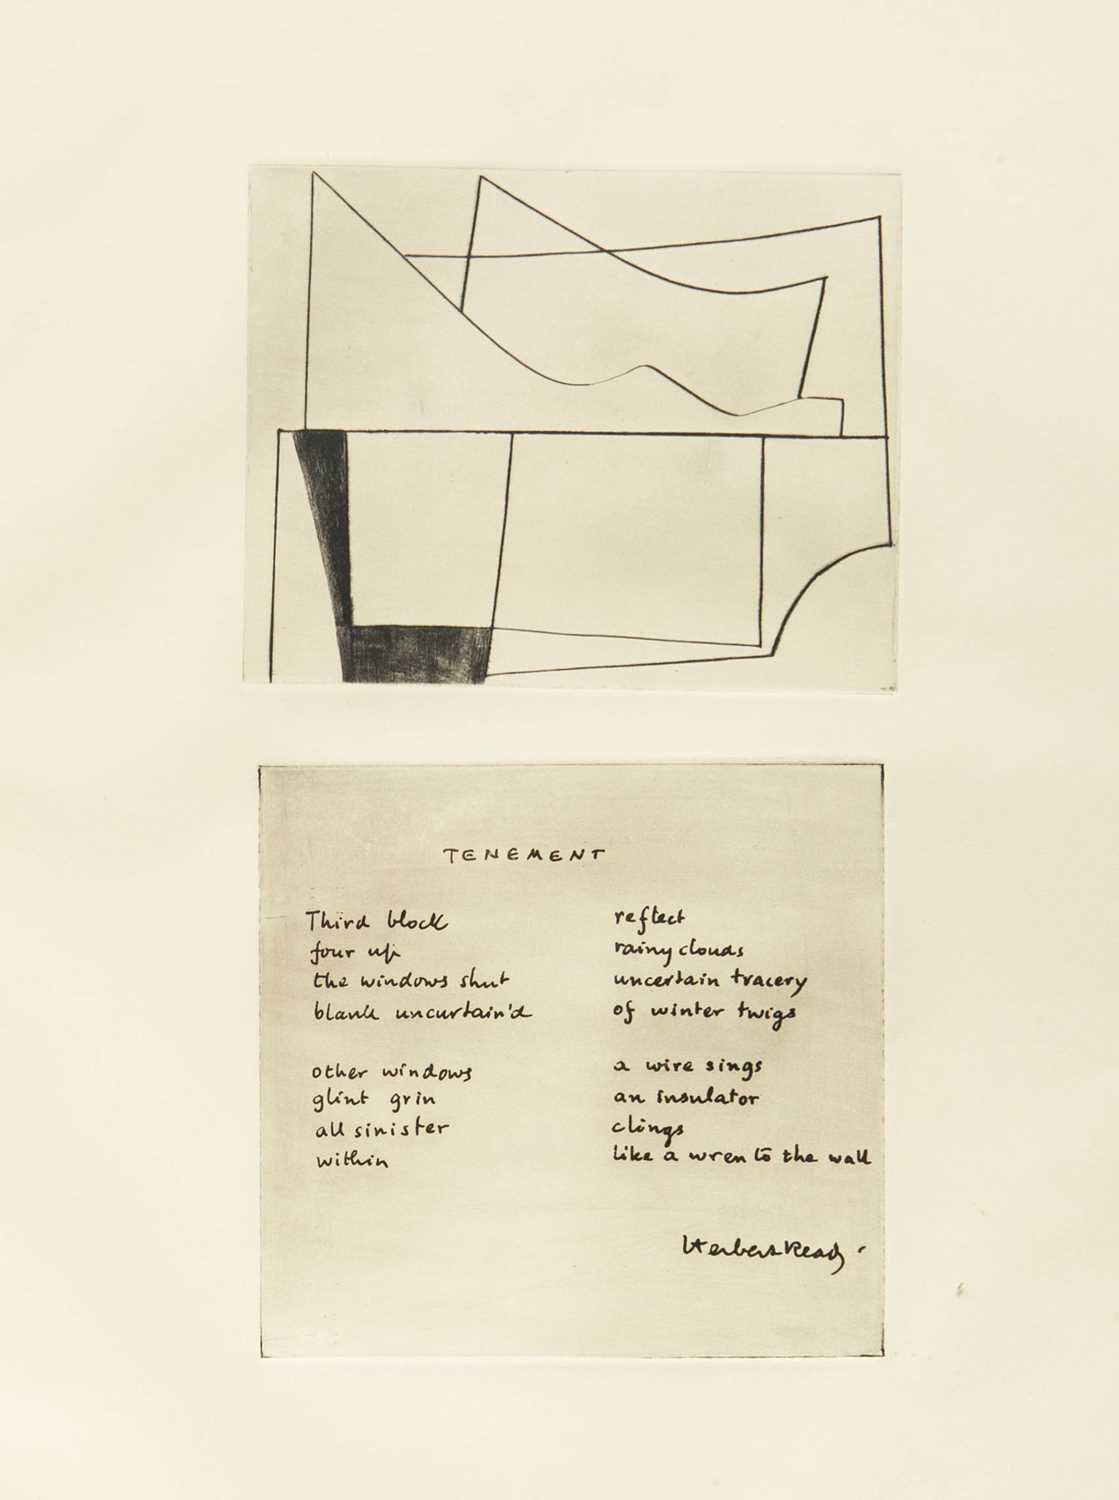 TENEMENT
Third block
four up
the windows shut
blank uncurtain'd
other windows
glint grin
all sinister
within
reflect
rainy clouds
uncertain tracery
of winter twigs
a wire sings
an insulator
clings
like a wren to the wall
Herbert Read